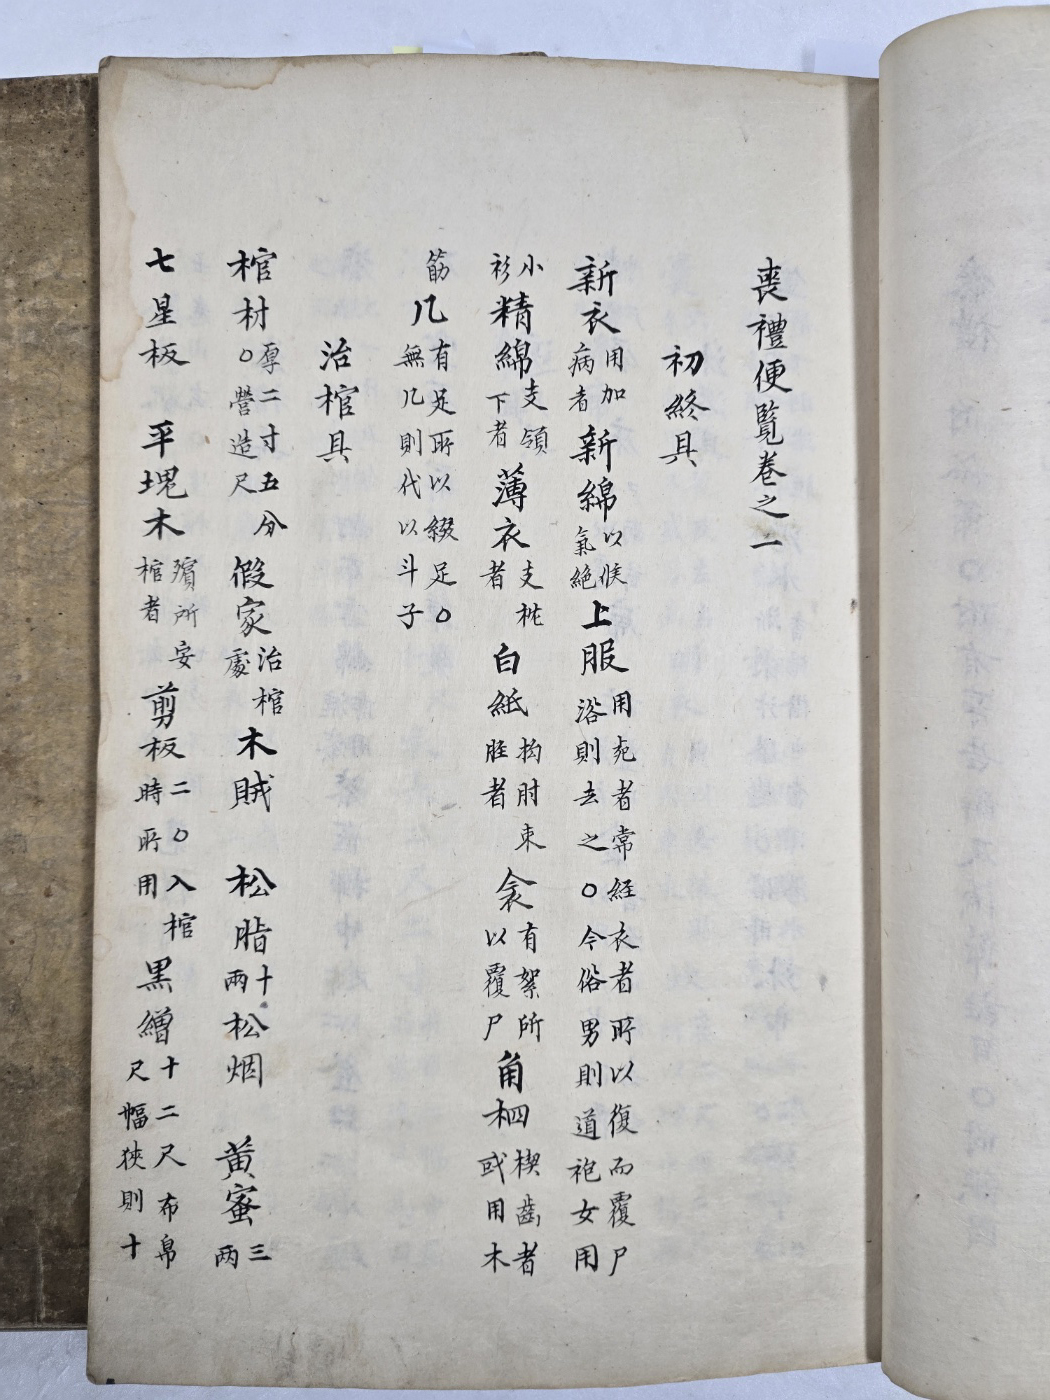 喪禮便覧卷之一
初終具
新衣用加病者新綿以候氣絶上服用死者常經衣者所以復而覆尸浴則去之○今俗男則道袍女用
小衫精綿支領下者薄衣支枕者白紙拘肘束胜者衾有絮所以覆尸角柶楔齒者或用木
筯几有足所以綴足○無几則代以斗子
治棺具
棺材厚二寸五分○營造尺假家治棺處木賊松脂十兩松烟黄蜜三兩
七星板平塊木殯所安棺者剪板二○入棺時所用黒繒十二尺布帛尺幅狹則十